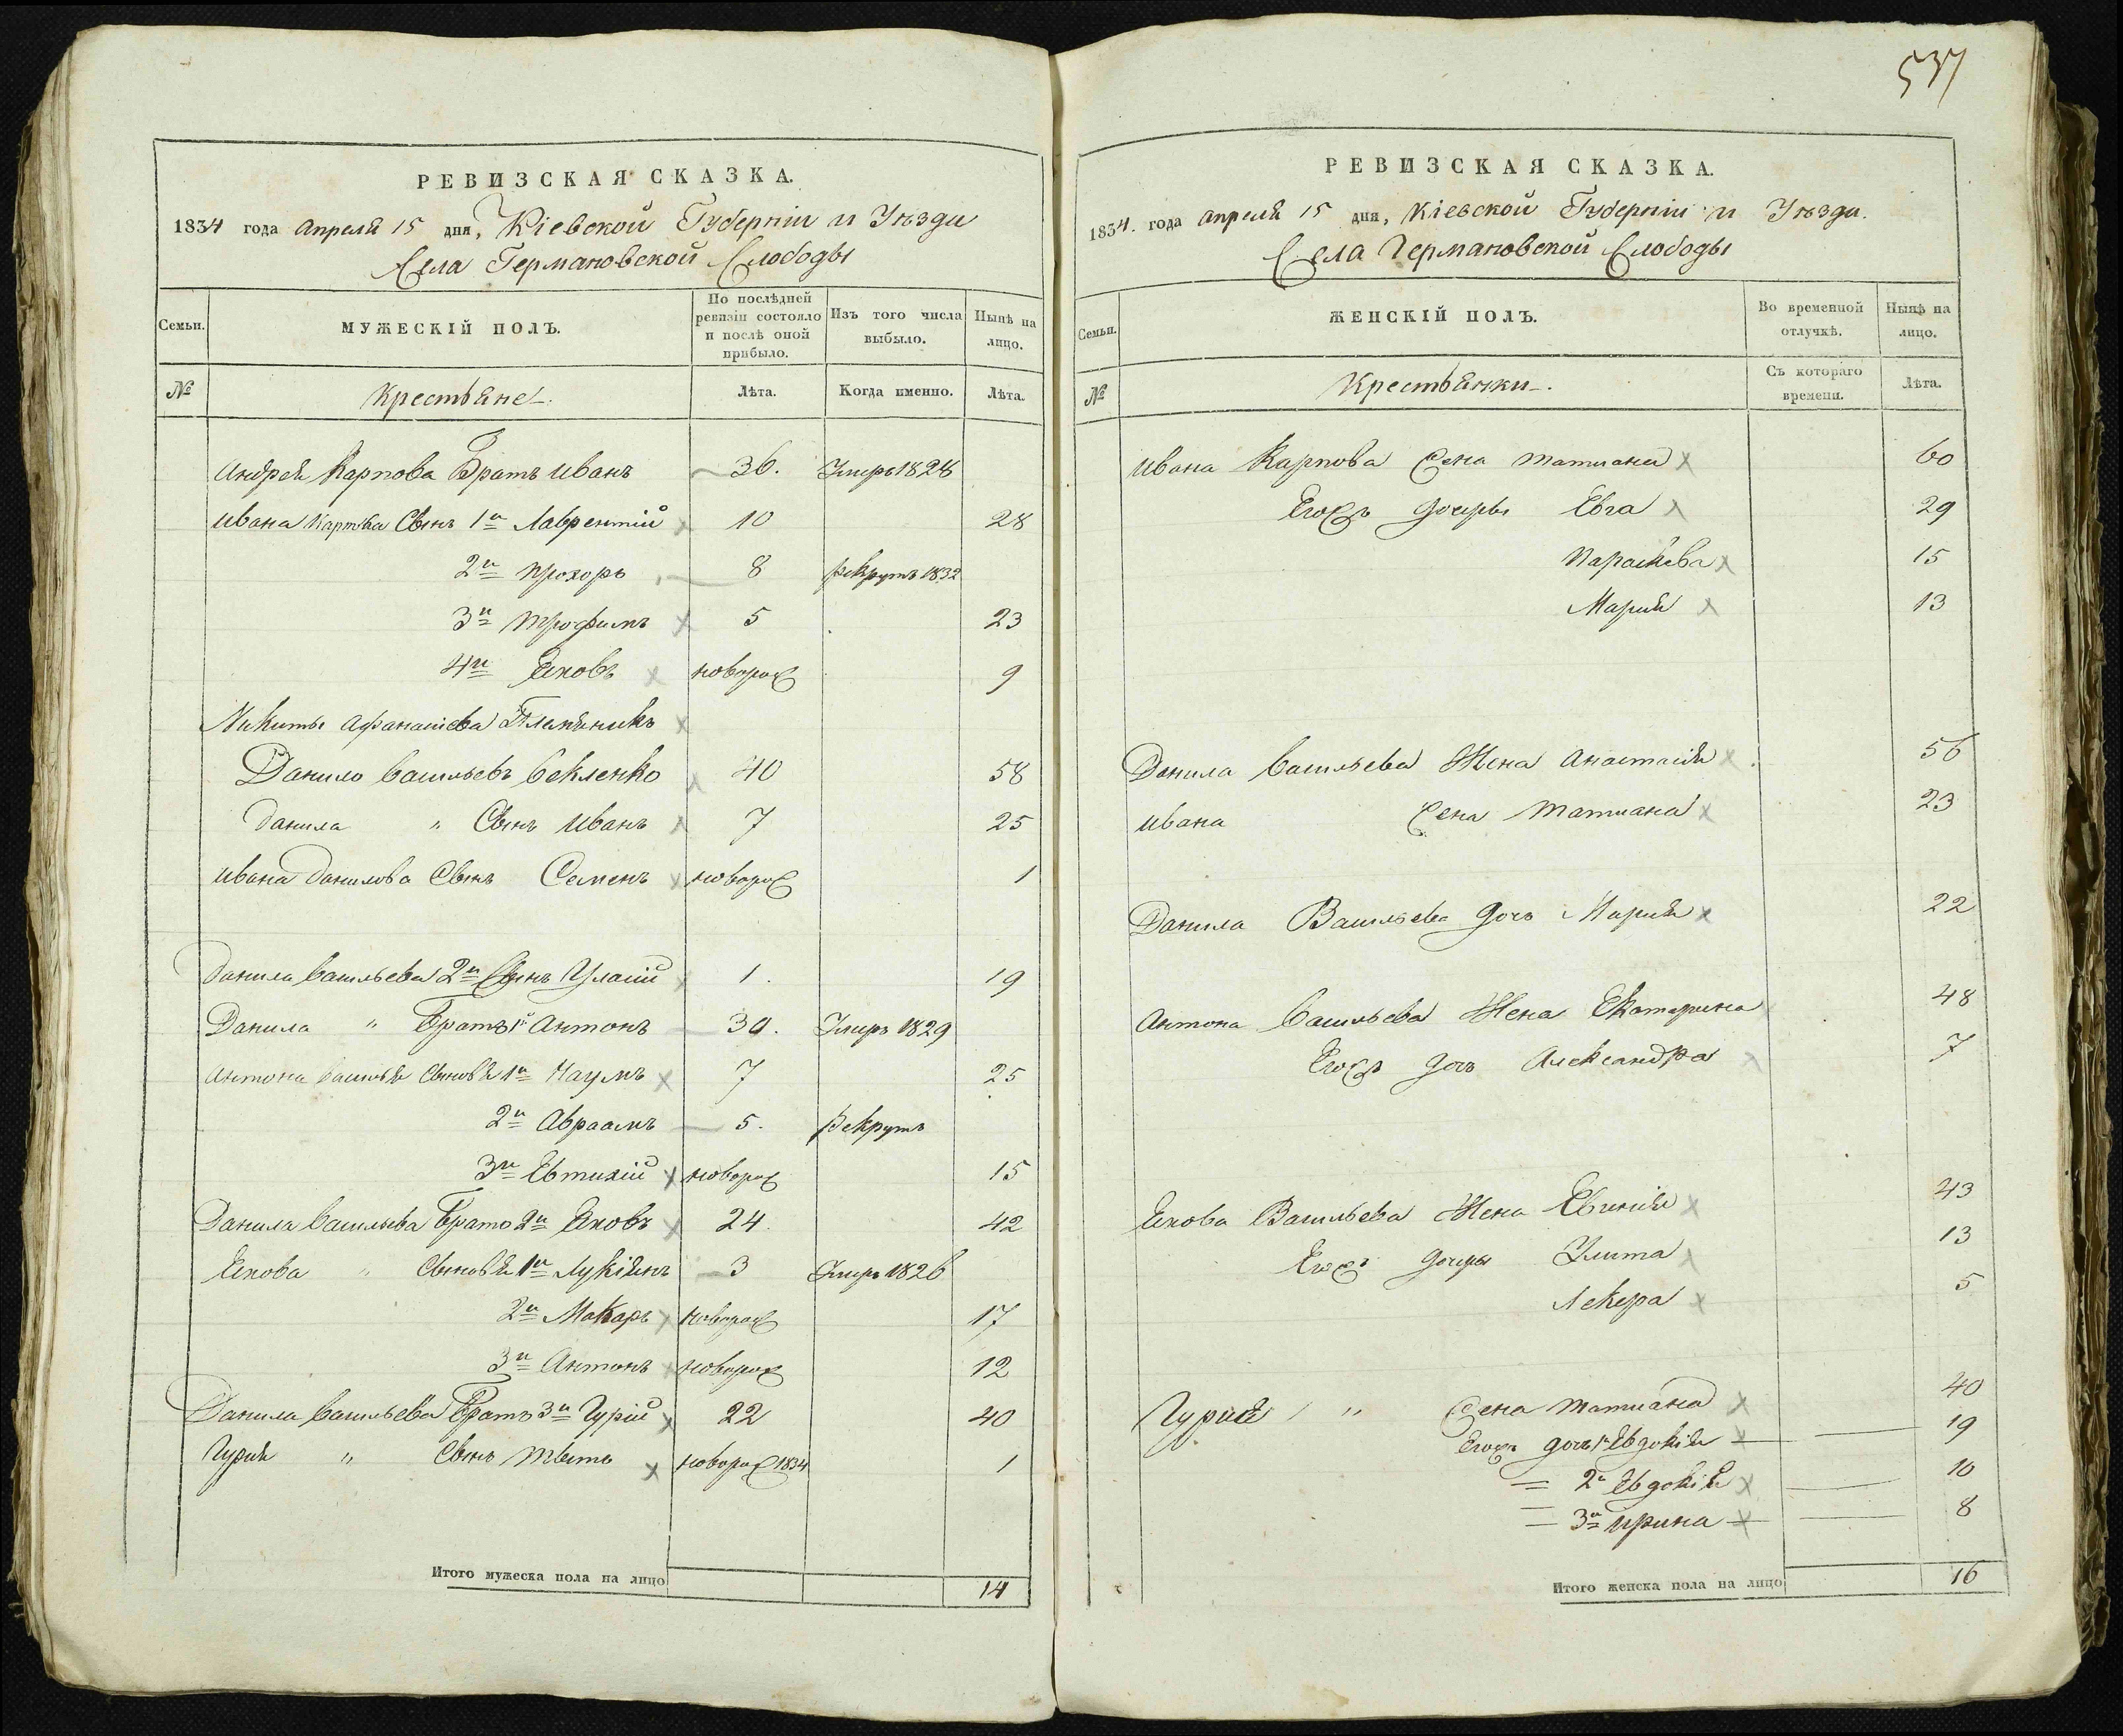 РЕВИЗСКАЯ СКАЗКА.
1834 года Апреля 15 дня, Кіевской Губерніи и Уѣзда
Села Германовской Слободы
Семьи.
МУЖЕСКІЙ ПОЛЪ.
По послѣдней ревизіи состояло и послѣ оной прибыло.
Изъ того числа выбыло.
Нынѣ на лицо.
№
Крестьяне.
Лѣта.
Когда именно.
Лѣта.
Андрея Карпова Братъ Иванъ 36. Умеръ 1828
Ивана Карпова Сынъ 1й Лаврентій 10 28
2й Прохоръ 8 рекрутъ 1832
3й Трофимъ 5 23
4й Яковъ новорож 9
Никиты Афанасіева Племяникъ
Данило Васильевъ Секленко 40 58
Данила " Сынъ Иванъ 7 25
Ивана Данилова Сынъ Семенъ новорож 1
Данила Васильева 2й Сынъ Уласій 1. 19
Данила " Братъ 1й Антонъ 30. Умеръ 1829
Антона Васильева Сыновья 1й Наумъ 7 25
2й Авраамъ 5. Рекрутъ
3й Евтихій новорож 15
Данила Васильева Братъ 2й Яковъ 24 42
Якова " Сыновья 1й Лукіянъ 3 Умеръ 1826
2й Макаръ новорож 17
3й Антонъ новорож 12
Данила Васильева Братъ 3й Гурій 22 40
Гурія " Сынъ Титъ новорож 1834 1
Итого мужеска пола на лицо 14
537
РЕВИЗСКАЯ СКАЗКА.
1834. года Апреля 15 дня, Кіевской Губерніи и Уѣзда.
Села Германовской Слободы
Семьи.
ЖЕНСКІЙ ПОЛЪ.
Во временной отлучкѣ.
Нынѣ на лицо.
№
Крестьянки.
Съ котораго времени.
Лѣта.
Ивана Карпова Жена Татиана 60
Егожъ дочеры Евга 29
Параскева 15
Марія 13
Данила Васильева Жена Анастасія 56
Ивана Жена Татиана 23
Данила Васильева дочъ Марія 22
Антона Васильева Жена Екатерина 48
Егожъ дочъ Александра 7
Якова Васильева Жена 43
Егожъ дочеры Улита 13
Лекера 5
Гурія " Жена Татиана 40
Егожъ дочъ 1я Евдокія 19
2я Евдокія 10
3я Ирина 8
Итого женска пола на лицо 16